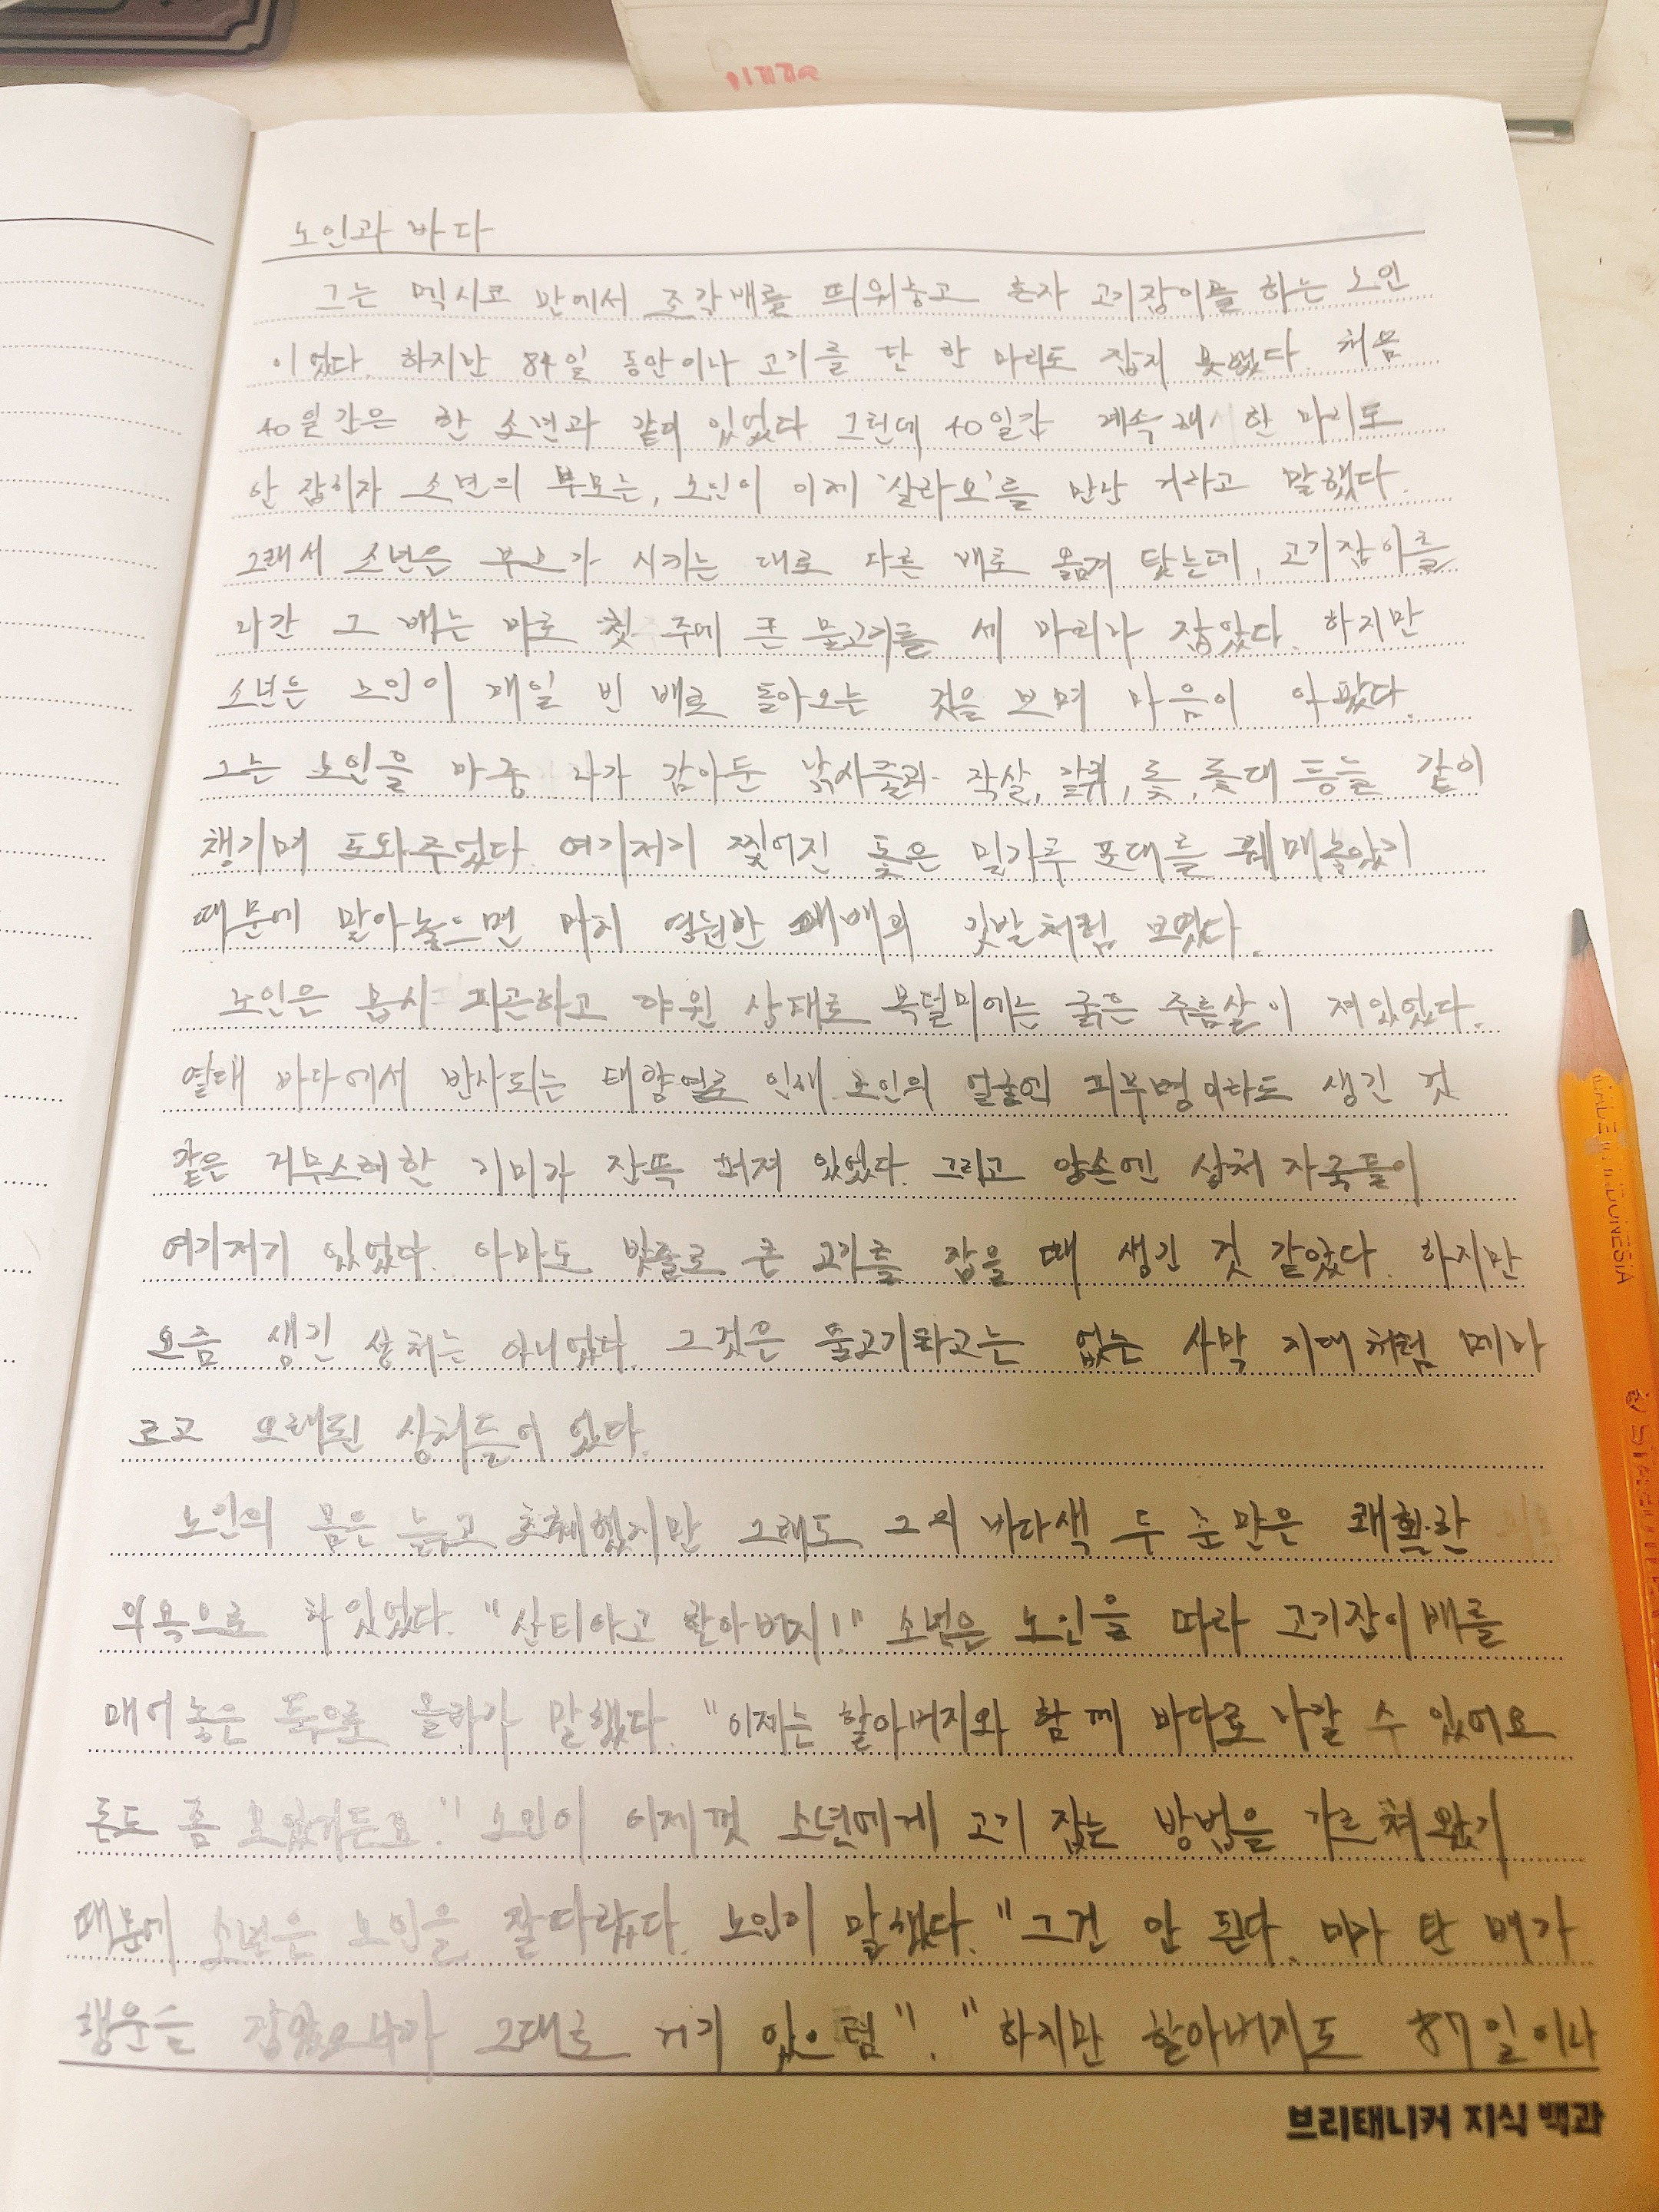 노인과 바다
그는 멕시코 만에서 조각배를 띄워놓고 혼자 고기잡이를 하는 노인
이었다. 하지만 84일 동안이나 고기를 단 한 마리도 잡지 못했다. 처음
40일간은 한 소년과 같이 있었다 그런데 40일간 계속해서 한 마리도
안 잡히자 소년의 부모는, 노인이 이제 '살라오'를 만난 거라고 말했다.
그래서 소년은 부모가 시키는 대로 다른 배로 옮겨 탔는데, 고기잡이를
나간 그 배는 바로 첫 주에 큰 물고기를 세 마리나 잡았다. 하지만
소년은 노인이 매일 빈 배로 돌아오는 것을 보며 마음이 아팠다.
그는 노인을 마중 나가 감아둔 낚시줄과 작살, 갈퀴, 돛, 돛대 등을 같이
챙기며 도와주었다 여기저기 찢어진 돛은 밀가루 포대를 꿰매놓았기
때문에 말아놓으면 마치 영원한 패배의 깃발처럼 보였다.
노인은 몹시 피곤하고 야윈 상태로 목덜미에는 굵은 주름살이 져있었다.
열대 바다에서 반사되는 태양열로 인해 노인의 얼굴엔 피부병이라도 생긴 것
같은 거무스레한 기미가 잔뜩 퍼져 있었다. 그리고 양손엔 상처 자국들이
여기저기 있었다. 아마도 밧줄로 큰 고기를 잡을 때 생긴 것 같았다. 하지만
요즘 생긴 상처는 아니었다. 그것은 물고기라고는 없는 사막 지대처럼 메마
르고 오래된 상처들이었다.
노인의 몸은 늙고 초췌했지만 그래도 그의 바다색 두 눈만은 쾌활한
의욕으로 차 있었다. "산티아고 할아버지!" 소년은 노인을 따라 고기잡이 배를
매어놓은 둑으로 올라가 말했다. "이제는 할아버지와 함께 바다로 나갈 수 있어요
돈도 좀 모았거든요." 노인이 이제껏 소년에게 고기 잡는 방법을 가르쳐 왔기
때문에 소년은 노인을 잘따랐다. 노인이 말했다. "그건 안 된다. 네가 탄 배가
행운을 잡았으니까 그대로 거기 있으렴". "하지만 할아버지도 87일이나
브리태니커 지식 백과